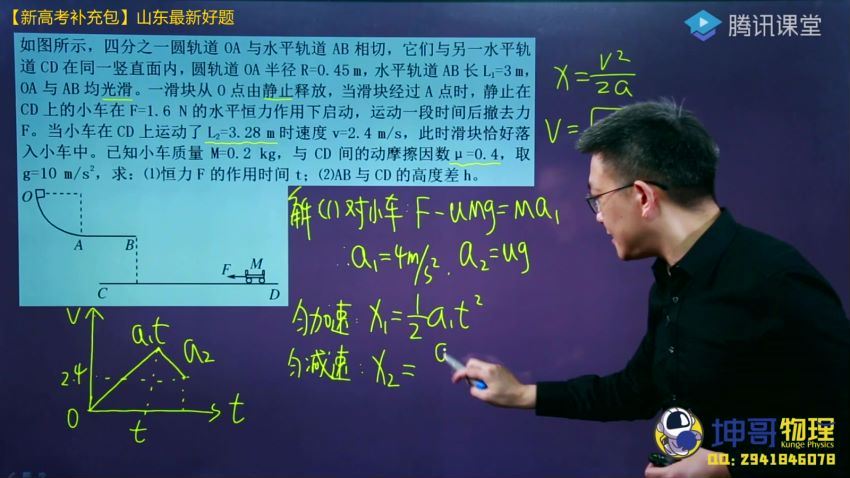 【新高考补充包】山东最新好题
腾讯课堂
如图所示，四分之一圆轨道 OA 与水平轨道 AB 相切，它们与另一水平轨
道 CD 在同一竖直面内，圆轨道 OA 半径 R=0.45 m，水平轨道 AB 长 L₁=3 m，
OA 与 AB 均光滑。一滑块从 O 点由静止释放，当滑块经过 A 点时，静止在
CD 上的小车在 F=1.6 N 的水平恒力作用下启动，运动一段时间后撤去力
F。当小车在 CD 上运动了 L₂=3.28 m 时速度 v=2.4 m/s，此时滑块恰好落
入小车中。已知小车质量 M=0.2 kg，与 CD 间的动摩擦因数 μ=0.4，取
g=10 m/s²，求：⑴恒力 F 的作用时间 t；⑵AB 与 CD 的高度差 h。
X=V²/2a
V=√
O
A
B
F
M
C
D
解(1)对小车：F-uMg=Ma₁
∴a₁=4m/s². a₂=ug
匀加速：X₁=½a₁t²
匀减速：X₂= a
V
a₁t
a₂
2.4
0
t
t
坤哥物理
Kunge Physics
QQ: 2941846078